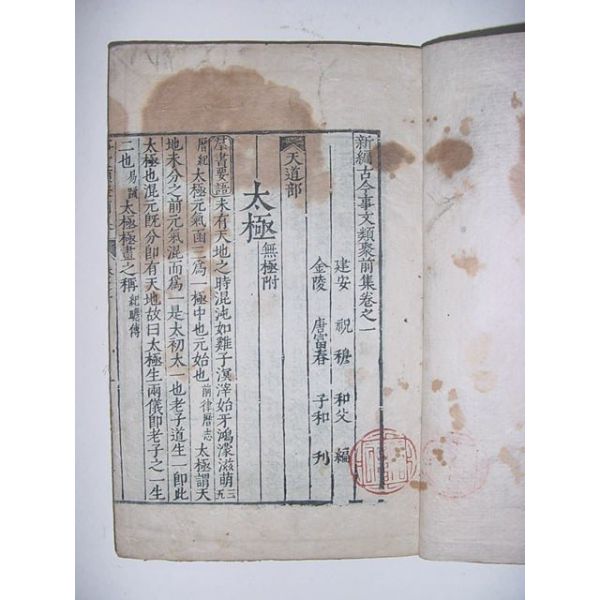 新編古今事文類聚前集卷之一
建安 祝穆 和父 編
金陵 唐富春 子和 刊
天道部
太極 無極附
羣書要語 未有天地之時混沌如雞子溟涬始牙鴻濛滋萌 三五
曆紀 太極元氣函三為一極中也元始也 前律曆志 太極謂天
地未分之前元氣混而為一是太初太一也老子道生一即此
太極也混元既分即有天地故曰太極生兩儀即老子之一生
二也 易疏 太極極盡之稱 紀瞻傳